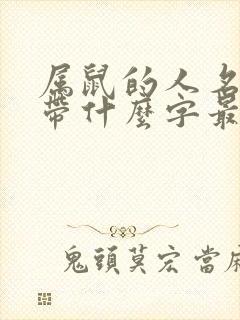 属鼠的人名
带什麼字最
鬼頭莫宏當